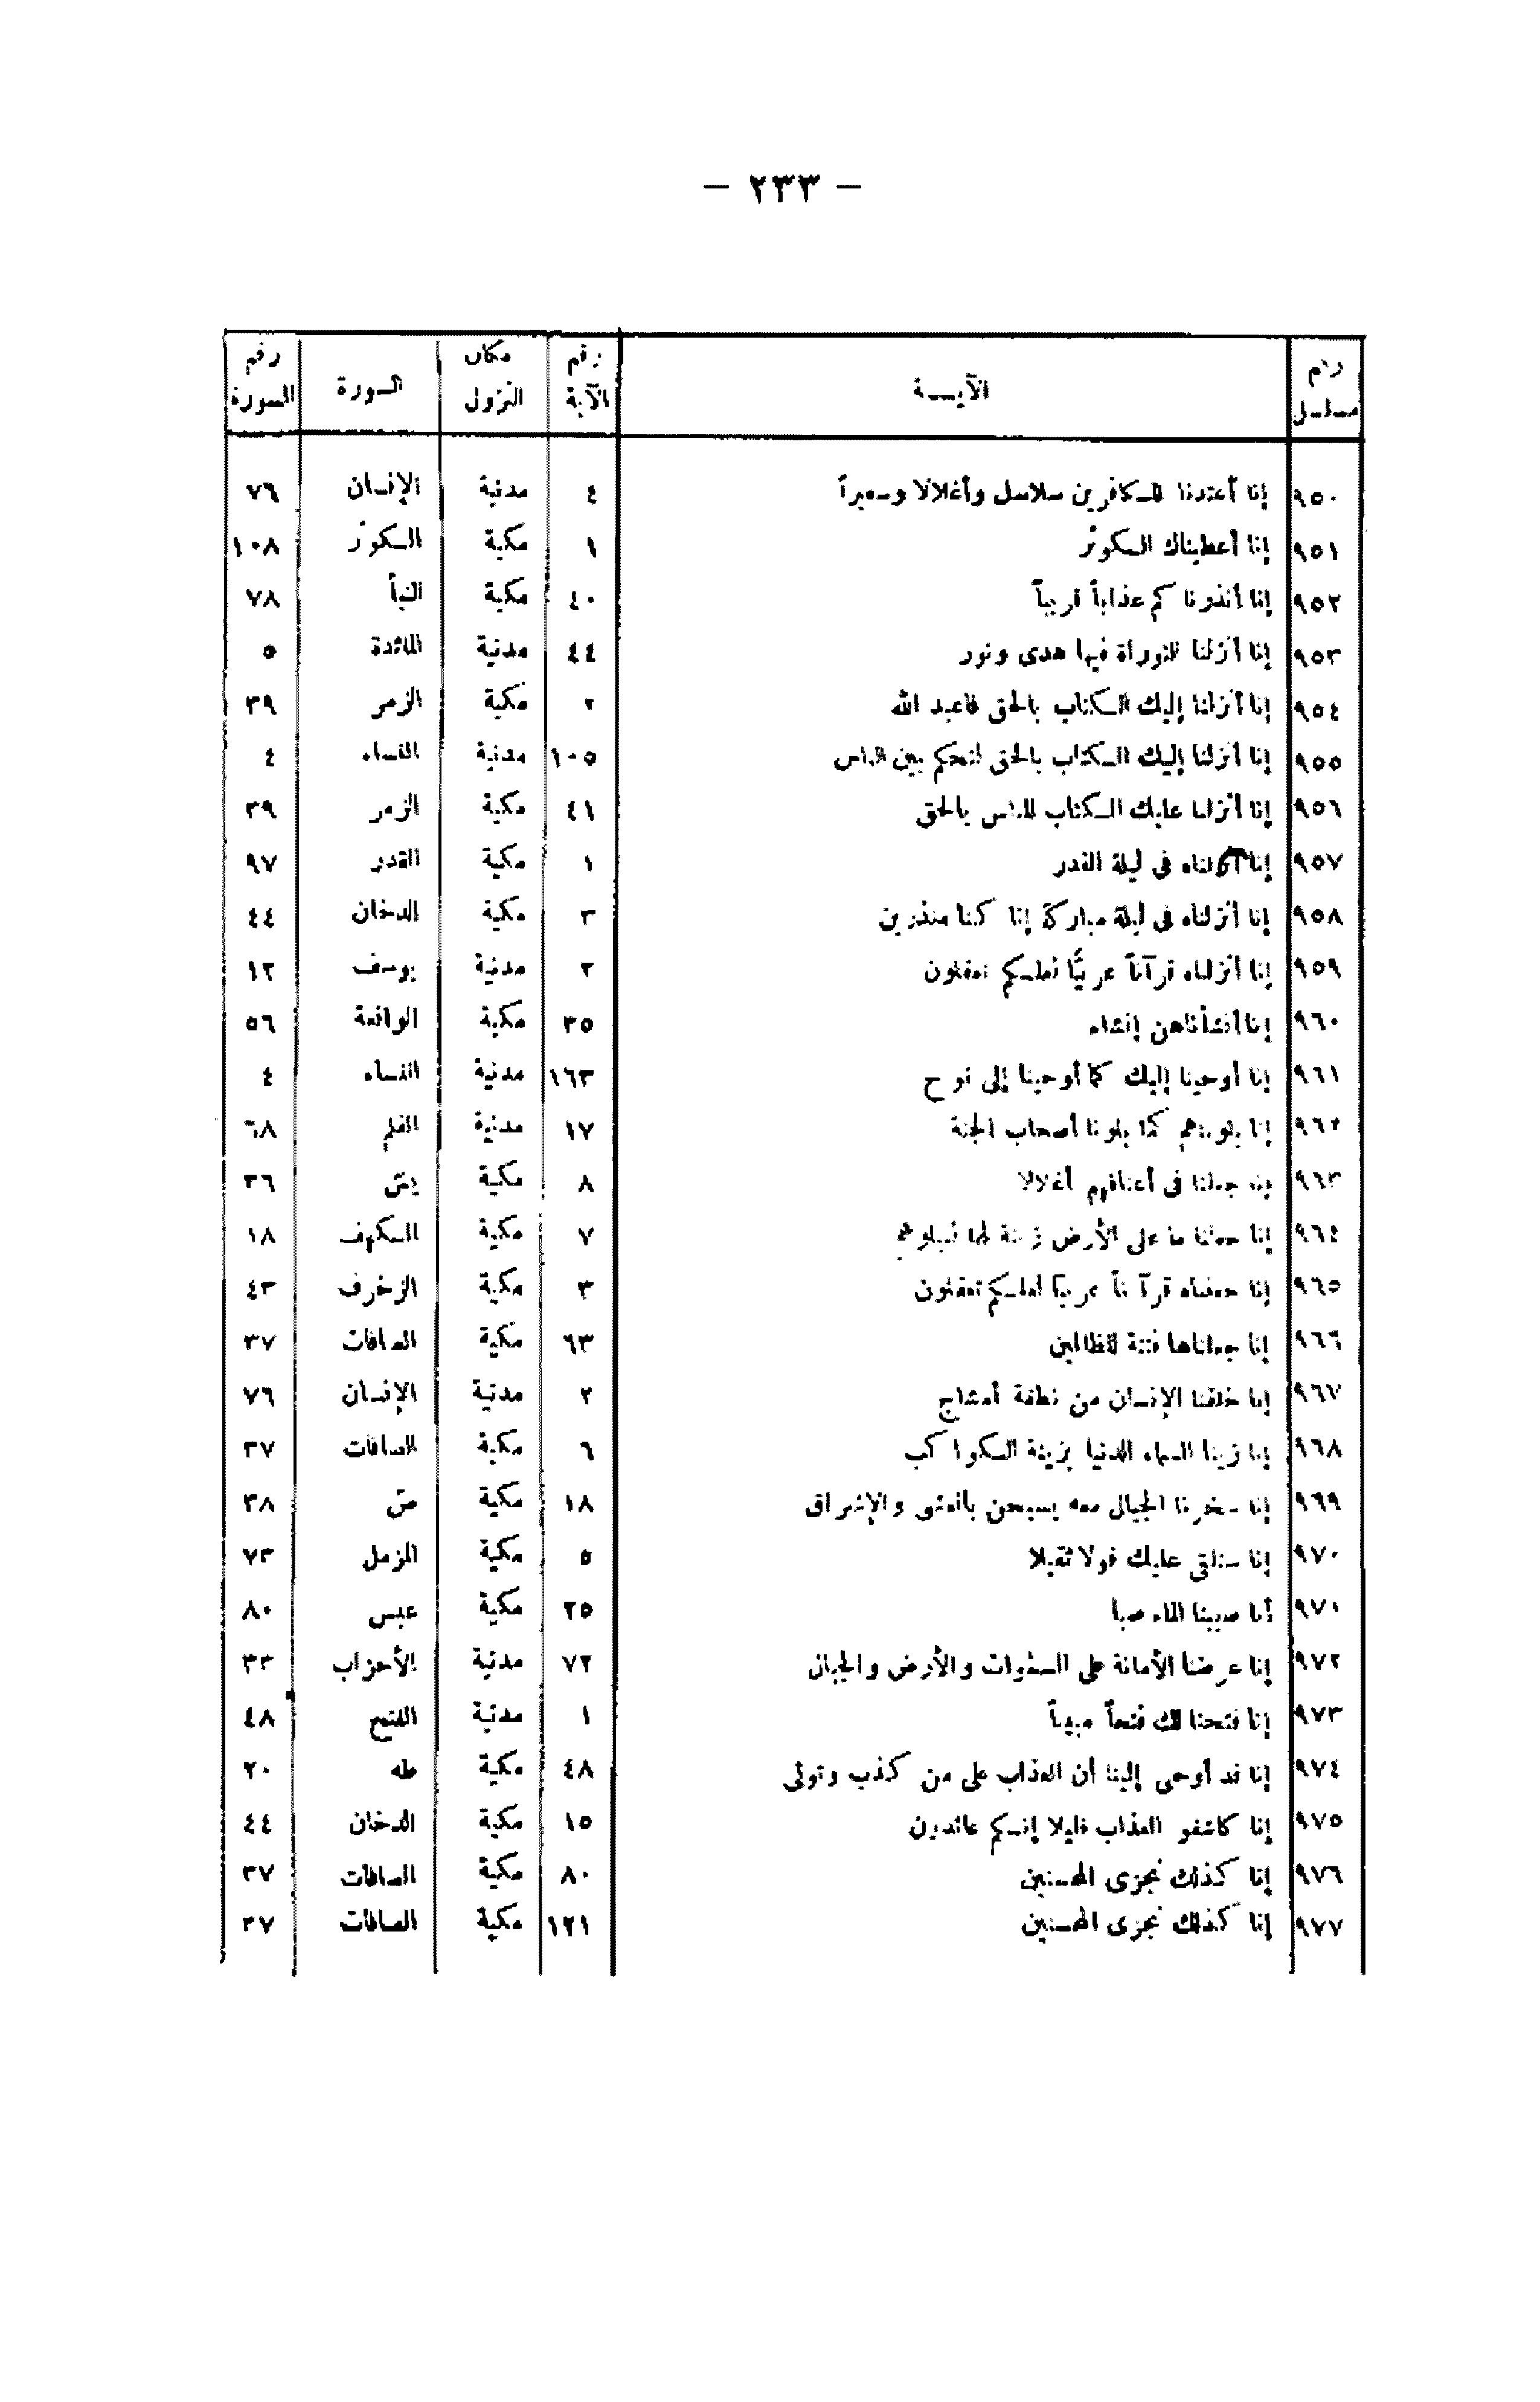 — ٢٣٣ —
رقم مسلسل الآيـــة رقم الآية مكان النزول السورة رقم السورة
٩٥٠ إنا أعتدنا للكافرين سلاسل وأغلالا وسعيراً ٤ مدنية الإنسان ٧٦
٩٥١ إنا أعطيناك الكوثر ١ مكية الكوثر ١٠٨
٩٥٢ إنا أنذرنا كم عذاباً قريباً ٤٠ مكية النبأ ٧٨
٩٥٣ إنا أنزلنا التوراة فيها هدى ونور ٤٤ مدنية المائدة ٥
٩٥٤ إنا أنزلنا إليك الكتاب بالحق فاعبد الله ٢ مكية الزمر ٣٩
٩٥٥ إنا أنزلنا إليك الكتاب بالحق لتحكم بين الناس ١٠٥ مدنية النساء ٤
٩٥٦ إنا أنزلنا عليك الكتاب للناس بالحق ٤١ مكية الزمر ٣٩
٩٥٧ إنا أنزلناه فى ليلة القدر ١ مكية القدر ٩٧
٩٥٨ إنا أنزلناه فى ليلة مباركة إنا كنا منذرين ٣ مكية الدخان ٤٤
٩٥٩ إنا أنزلناه قرآناً عربيًّا لعلكم تعقلون ٢ مدنية يوسف ١٢
٩٦٠ إنا أنشأناهن إنشاء ٣٥ مكية الواقعة ٥٦
٩٦١ إنا أوحينا إليك كما أوحينا إلى نوح ١٦٣ مدنية النساء ٤
٩٦٢ إنا بلوناهم كما بلونا أصحاب الجنة ١٧ مدنية القلم ٦٨
٩٦٣ إنا جعلنا فى أعناقهم أغلالا ٨ مكية يسٓ ٣٦
٩٦٤ إنا جعلنا ما على الأرض زينة لها لنبلوهم ٧ مكية الكهف ١٨
٩٦٥ إنا جعلناه قرآناً عربيًّا لعلكم تعقلون ٣ مكية الزخرف ٤٣
٩٦٦ إنا جعلناها فتنة للظالمين ٦٣ مكية الصافات ٣٧
٩٦٧ إنا خلقنا الإنسان من نطفة أمشاج ٢ مدنية الإنسان ٧٦
٩٦٨ إنا زينا السماء الدنيا بزينة الكواكب ٦ مكية الصافات ٣٧
٩٦٩ إنا سخرنا الجبال معه يسبحن بالعشى والإشراق ١٨ مكية صٓ ٣٨
٩٧٠ إنا سنلقى عليك قولا ثقيلا ٥ مكية المزمل ٧٣
٩٧١ أنا صببنا الماء صبا ٢٥ مكية عبس ٨٠
٩٧٢ إنا عرضنا الأمانة على السموات والأرض والجبال ٧٢ مدنية الأحزاب ٣٣
٩٧٣ إنا فتحنا لك فتحاً مبيناً ١ مدنية الفتح ٤٨
٩٧٤ إنا قد أوحى إلينا أن العذاب على من كذب وتولى ٤٨ مكية طه ٢٠
٩٧٥ إنا كاشفو العذاب قليلا إنكم عائدون ١٥ مكية الدخان ٤٤
٩٧٦ إنا كذلك نجزى المحسنين ٨٠ مكية الصافات ٣٧
٩٧٧ إنا كذلك نجزى المحسنين ١٢١ مكية الصافات ٣٧